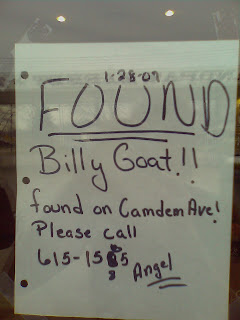 1-28-07
FOUND
Billy Goat!!
found on Camdem Ave!
Please call
Angel